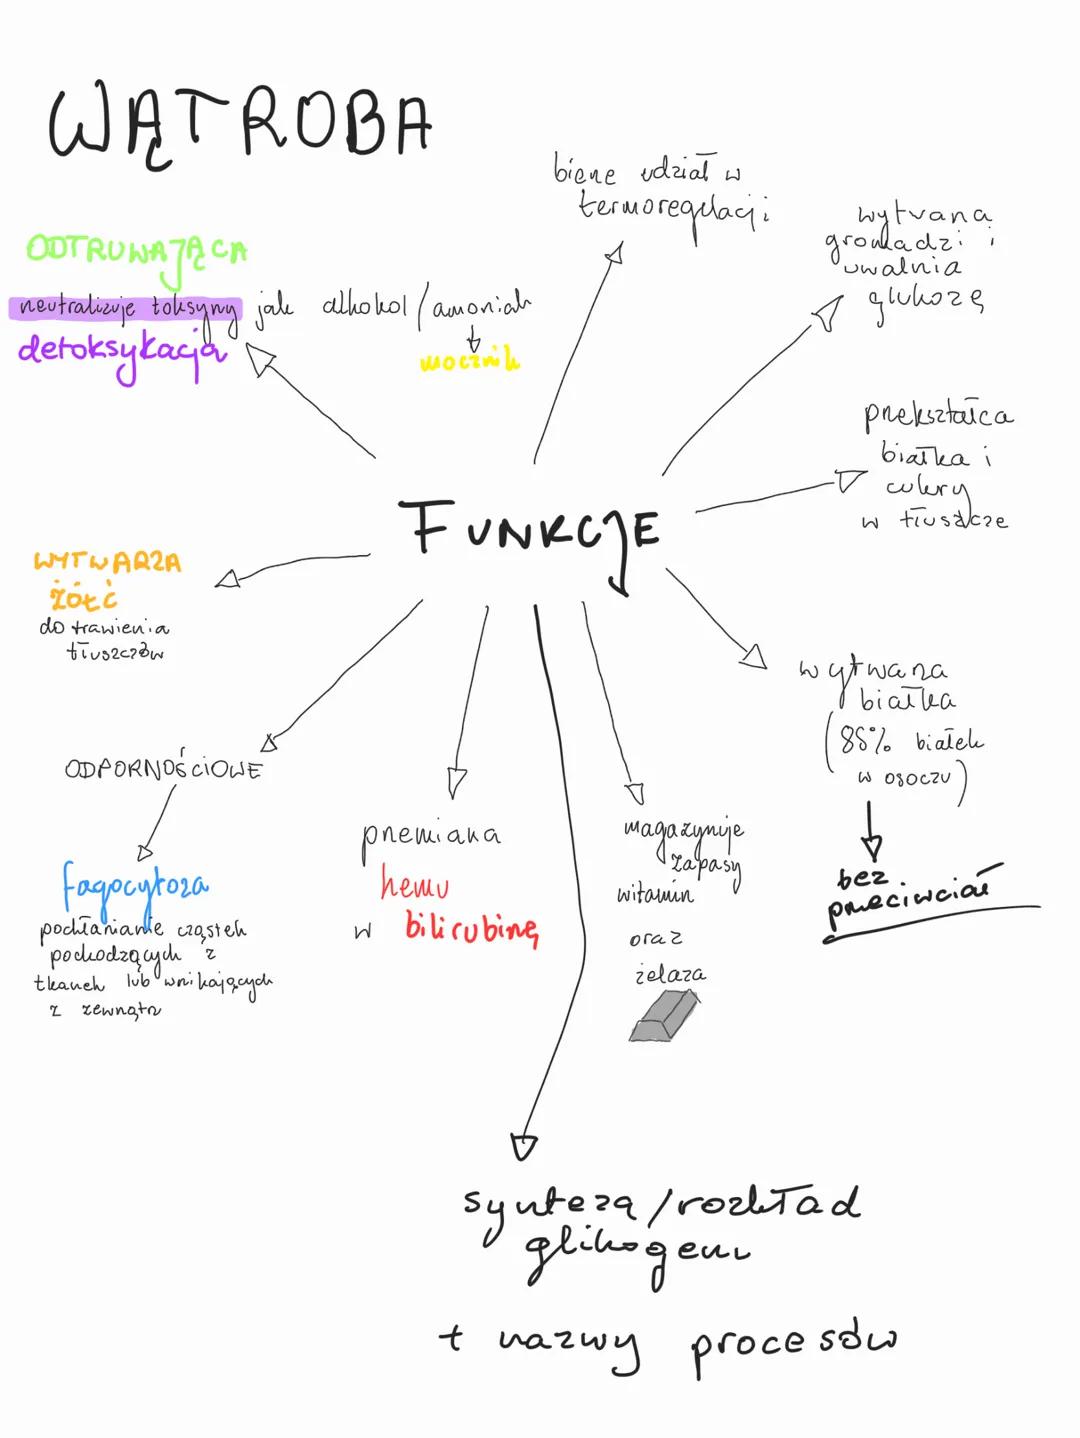 WĄTROBA
bierze udział w
termoregulacji
wytwarza
gromadzi i
uwalnia
glukozę
ODTRUWAJĄCA
neutralizuje toksyny jak alkohol / amoniak
mocznik
detoksykacja
przekształca
białka i
cukry
w tłuszcze
FUNKCJE
WYTWARZA
ŻÓŁĆ
do trawienia
tłuszczów
wytwarza
białka
(85% białek
w osoczu)
bez
przeciwciał
ODPORNOŚCIOWE
fagocytoza
pochłanianie cząstek
pochodzących z
tkanek lub wnikających
z zewnątrz
przemiana
hemu
w bilirubinę
magazynuje
zapasy
witamin
oraz
żelaza
synteza/rozkład
glikogenu
+ nazwy procesów